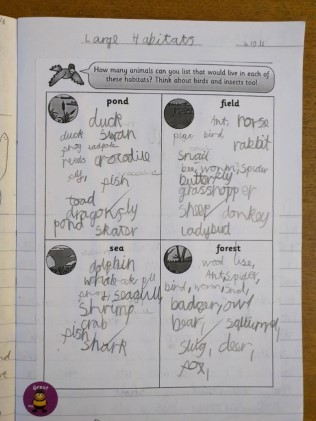 Large Habitats
How many animals can you list that would live in each of
these habitats? Think about birds and insects too!
pond
duck
duck swan
frog tadpole
reeds crocodile
fish
toad
dragonfly
pond
skator
field
Ant, horse
bird
rabbit
snail
bee, worm, spider
butterfly
grasshopper
sheep donkey
ladybud
sea
dolphin
whale
seagull
shrimp
crab
fish
shark
forest
wood
Ant, spider,
bird, worm, snail,
badger, owl
bear,
slug, deer,
fox,
Great